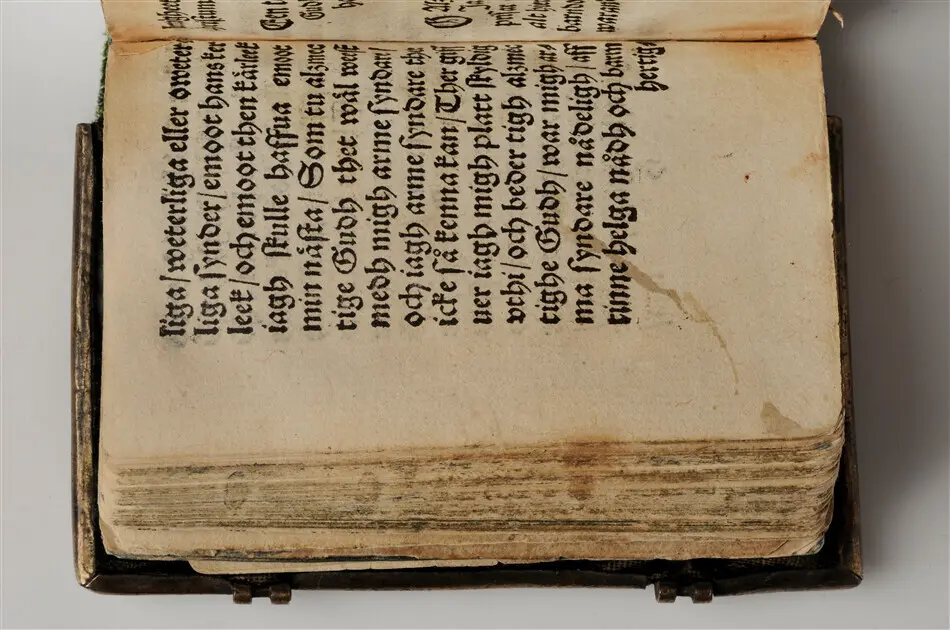 liga/weterliga eller oweter
liga synder/emoot hans ker
leek/och emoot then kärleek
iagh skulle haffua emoot
min nästa/Som tu alzmec
tige Gudh thet wäl weest
medh migh arme syndare/
och iagh arme syndare thz
icke så kenna kan/Ther giff
uer iagh migh platt skyldig
vthi/och beder tigh alzmec
tighe Gudh/war migh ar-
ma syndare nådeligh/aff
tinne helga nådh och barm
hertig